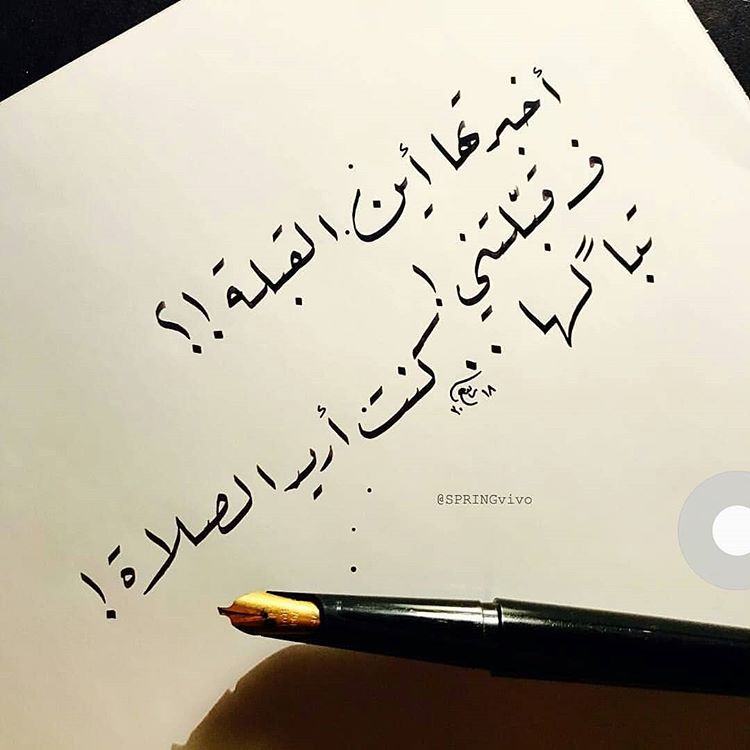 أخبرتها أين القبلة !؟
ف قبّلتني !
تباً لها ..
كنت أريد الصلاة !
٢٠١٨
@SPRINGvivo